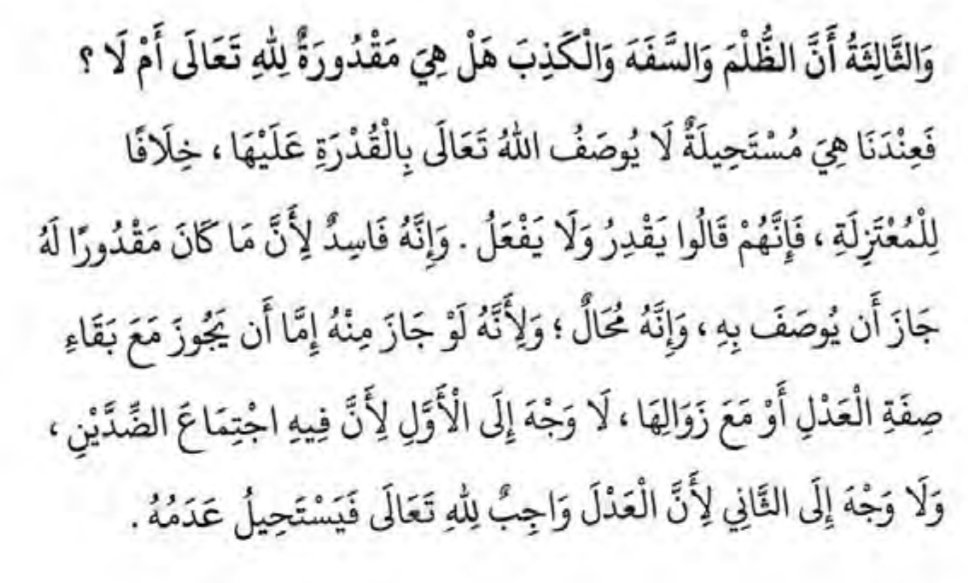 وَالثَّالِثَةُ أَنَّ الظُّلْمَ وَالسَّفَهَ وَالْكَذِبَ هَلْ هِيَ مَقْدُورَةٌ لِلّٰهِ تَعَالَى أَمْ لَا ؟
فَعِنْدَنَا هِيَ مُسْتَحِيلَةٌ لَا يُوصَفُ اللهُ تَعَالَى بِالْقُدْرَةِ عَلَيْهَا ، خِلَافًا
لِلْمُعْتَزِلَةِ ، فَإِنَّهُمْ قَالُوا يَقْدِرُ وَلَا يَفْعَلُ . وَإِنَّهُ فَاسِدٌ لِأَنَّ مَا كَانَ مَقْدُورًا لَهُ
جَازَ أَن يُوصَفَ بِهِ ، وَإِنَّهُ مُحَالٌ ؛ وَلِأَنَّهُ لَوْ جَازَ مِنْهُ إِمَّا أَن يَجُوزَ مَعَ بَقَاءِ
صِفَةِ الْعَدْلِ أَوْ مَعَ زَوَالِهَا ، لَا وَجْهَ إِلَى الْأَوَّلِ لِأَنَّ فِيهِ اجْتِمَاعَ الضِّدَّيْنِ ،
وَلَا وَجْهَ إِلَى الثَّانِي لِأَنَّ الْعَدْلَ وَاجِبٌ لِلّٰهِ تَعَالَى فَيَسْتَحِيلُ عَدَمُهُ .